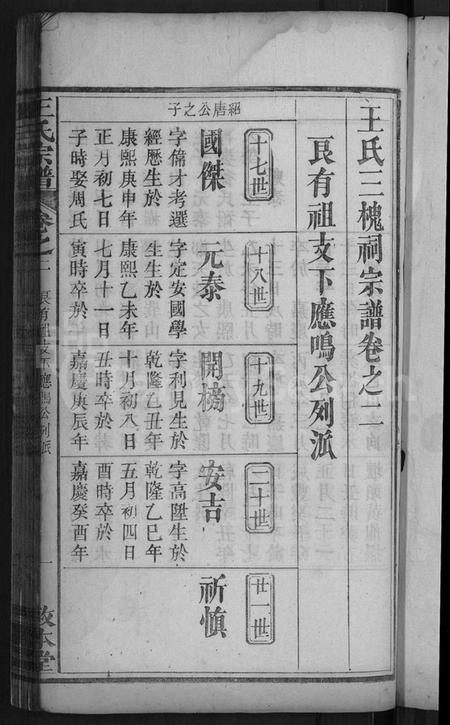 王氏三槐祠宗譜卷之二
艮有祖支下應鳴公列派
十七世
十八世
十九世
二十世
廿一世
紹唐公之子
國傑
字偹才考選
經歷生於
康熙庚申年
正月初七日
子時娶周氏
元泰
字定安國學
生生於
康熙乙未年
七月十一日
寅時卒於
開榜
字利見生於
乾隆乙丑年
十月初八日
丑時卒於
嘉慶庚辰年
安吉
字高陞生於
乾隆乙巳年
五月初四日
酉時卒於
嘉慶癸酉年
祈慎
王氏宗譜
卷之二
艮有祖支下應鳴公列派
一
敦本堂